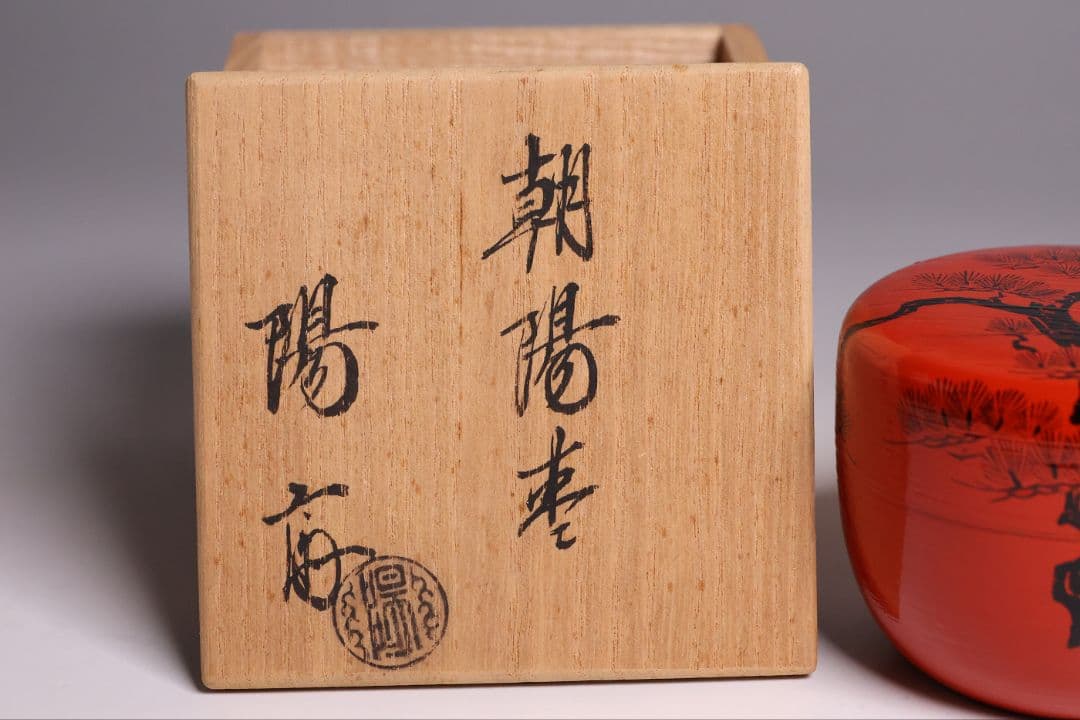 朝陽棗
陽斎